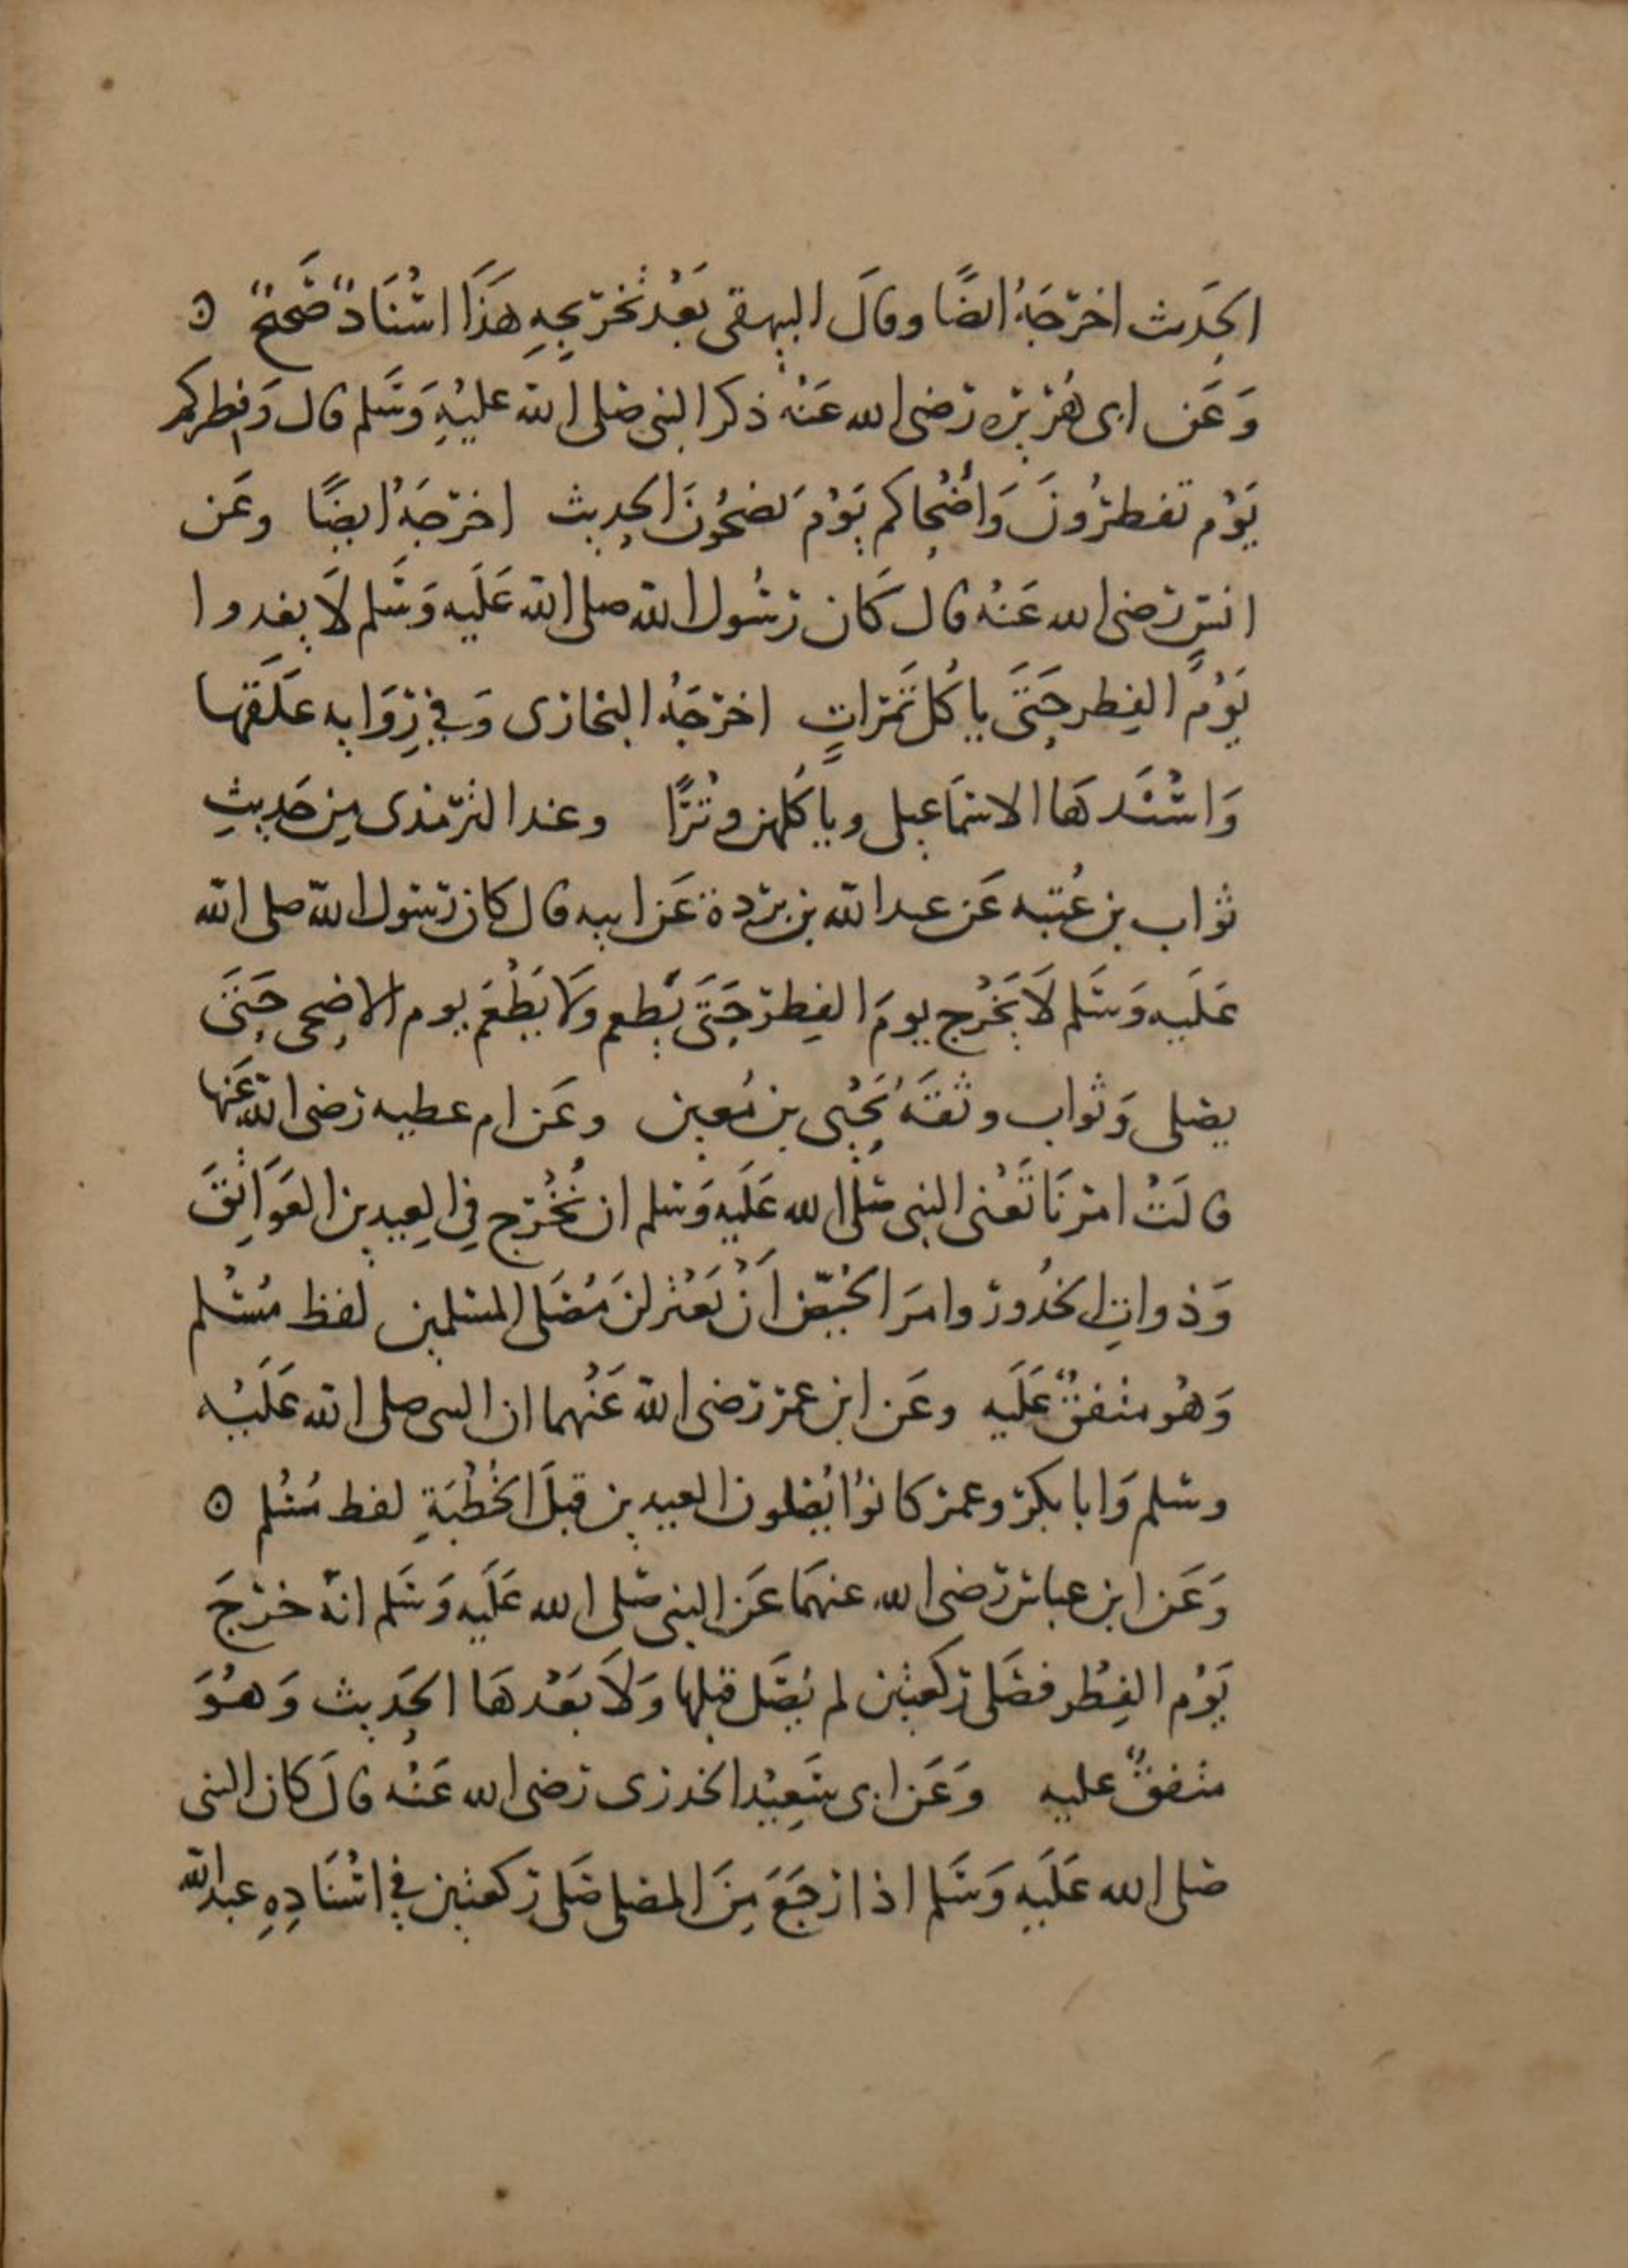 الحَدِيث اخرَجَهُ ايضًا وقالَ البيهقى بَعْد تخرِيجِهِ هَذَا اسْنَادٌ صَحِيحٌ ⊙
وَعَن ابى هُرَيْرَه رَضى الله عَنْهُ ذكر النبى صَلى الله عليْهِ وَسَلم قال وَفِطركم
يَوْم تفطرُونَ وَأضْحاكم يَوْم تَضحُّونَ الحديث اخرَجَهُ ايضًا وعَن
انسٍ رَضى الله عَنْهُ قال كَان رَسُول الله صلى الله عَلَيه وَسَلم لَا يغدوا
يَوْمَ الفِطر حَتىَ ياكُل تَمَراتٍ اخرَجَهُ البخارى وَفي رِوَايه عَلَقها
وَاسْنَدهَا الاسمَاعيلى وياكُلهن وتْرًا وعند الترمذى مِن حَديثِ
ثواب بن عُتبه عَن عبد الله بن بريدة عَن ابيه قال كان رَسُول الله صلى الله
عَلَيه وَسَلم لَا يَخْرُج يومَ الفِطر حَتىَ يَطعم وَلَا يَطْعَمَ يوم الاضحى حَتىَ
يصلى وَثواب وثقَهُ يَحْيى بن مُعين وعَن ام عطيه رَضى الله عَنها
قالَتْ امَرنَا تَعْنى النبى صَلى الله عَليه وَسلم ان نُخْرج فِى العِيدين العَوَاتِقَ
وَذواتِ الخدُور وامَر الحُيّض اَنْ يَعْتزلنَ مُصَلى المسلمين لفظ مُسْلم
وَهُو متفقٌ عَلَيه وعَن ابن عمر رَضى الله عَنْهما ان النبى صلى الله عَلَيْه
وسلم وَابا بكر وعمر كانوْا يُصَلون العيدين قبلَ الخُطْبَةِ لفظ مُسْلم ⊙
وَعَن ابن عباس رَضى الله عنهمَا عَن النبى صَلى الله عَلَيه وَسَلم انهُ خرَجَ
يَوْم الفِطْر فصَلى رَكعتين لم يُصَل قبلها وَلَا بَعْدهَا الحَديث وَهُوَ
متفقٌ عليه وَعَن ابى سَعِيْد الخدرى رَضى الله عَنْه قالَ كان النبى
صَلى الله عَلَيهِ وَسَلم اذا رَجَعَ مِنَ المصلى صَلى رَكعتين في اسْنَادِهِ عبد الله